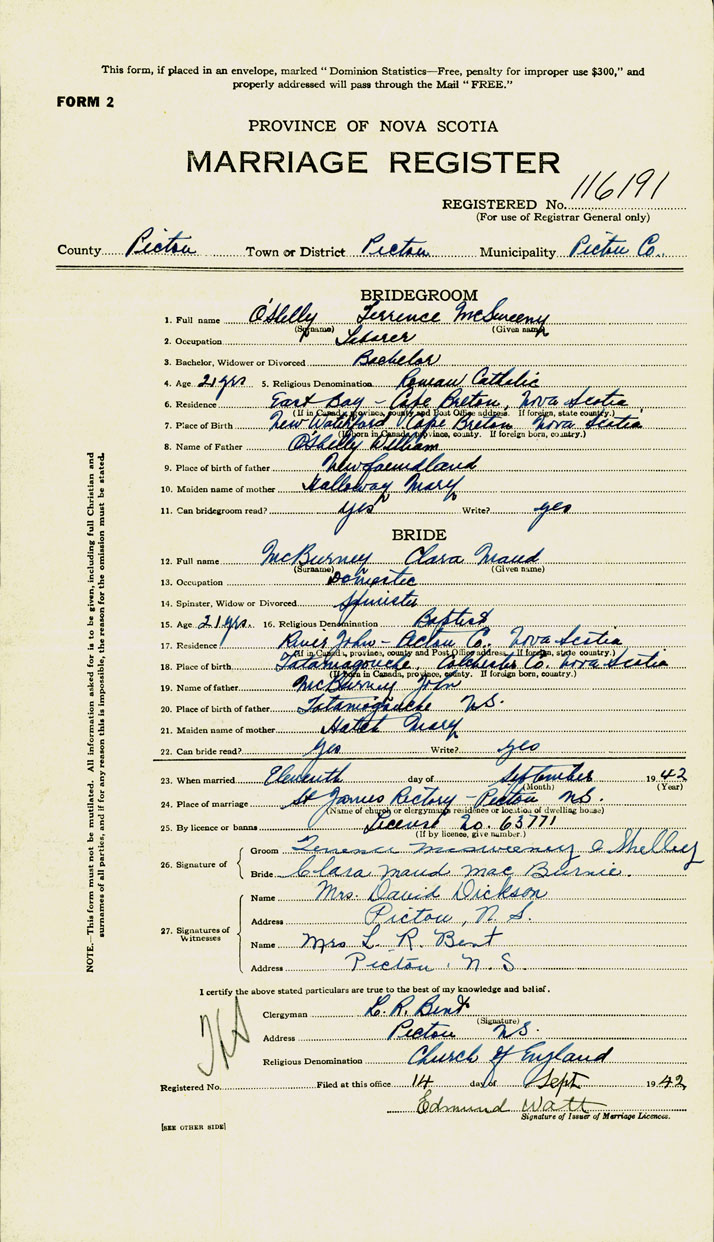 This form, if placed in an envelope, marked “ Dominion Statistics—Free, penalty for improper use $300,” and
properly addressed will pass through the Mail “ FREE.”
FORM 2
PROVINCE OF NOVA SCOTIA
MARRIAGE REGISTER
REGISTERED No. 116191
(For use of Registrar General only)
County Pictou Town or District Pictou Municipality Pictou Co.
BRIDEGROOM
1. Full name O'Shelly Terrence McSweeny
(Surname) (Given name)
2. Occupation
3. Bachelor, Widower or Divorced Bachelor
4. Age 21 yrs 5. Religious Denomination Roman Catholic
6. Residence East Bay - Cape Breton, Nova Scotia
(If in Canada, province, county and Post Office address. If foreign, state country.)
7. Place of Birth New Waterford, Cape Breton Nova Scotia
(If born in Canada, province, county. If foreign born, country.)
8. Name of Father O'Shelly William
9. Place of birth of father Newfoundland
10. Maiden name of mother Halloway Mary
11. Can bridegroom read? yes Write? yes
BRIDE
12. Full name McBurney Clara Maud
(Surname) (Given name)
13. Occupation Domestic
14. Spinster, Widow or Divorced Spinister
15. Age 21 yrs. 16. Religious Denomination Baptist
17. Residence River John - Pictou C. Nova Scotia
(If in Canada, province, county and Post Office address. If foreign, state country.)
18. Place of birth Tatamagouche, Colchester Co. Nova Scotia
(If born in Canada, province, county. If foreign born, country.)
19. Name of father McBurney John
20. Place of birth of father Tatamagouche N.S.
21. Maiden name of mother Hatch Mary
22. Can bride read? yes Write? yes
23. When married Eleventh day of September 1942
(Month) (Year)
24. Place of marriage St James Rectory - Pictou N.S.
(Name of church or clergyman's residence or location of dwelling house)
25. By licence or banns License No. 63771
(If by licence, give number.)
26. Signature of
Groom Terrence McSweeney O Shelley
Bride Clara Maud Mac Burnie.
27. Signatures of Witnesses
Name Mrs. David Dickson
Address Pictou, N.S.
Name Mrs L. R. Bent
Address Pictou, N.S.
I certify the above stated particulars are true to the best of my knowledge and belief.
Clergyman L. R. Bent
(Signature)
Address Pictou N.S.
Religious Denomination Church of England
Registered No. Filed at this office 14 day of Sept 1942
Edmund Watt
Signature of Issuer of Marriage Licences.
[SEE OTHER SIDE]
NOTE.—This form must not be mutilated. All information asked for is to be given, including full Christian and
surnames of all parties, and if for any reason this is impossible, the reason for the omission must be stated.